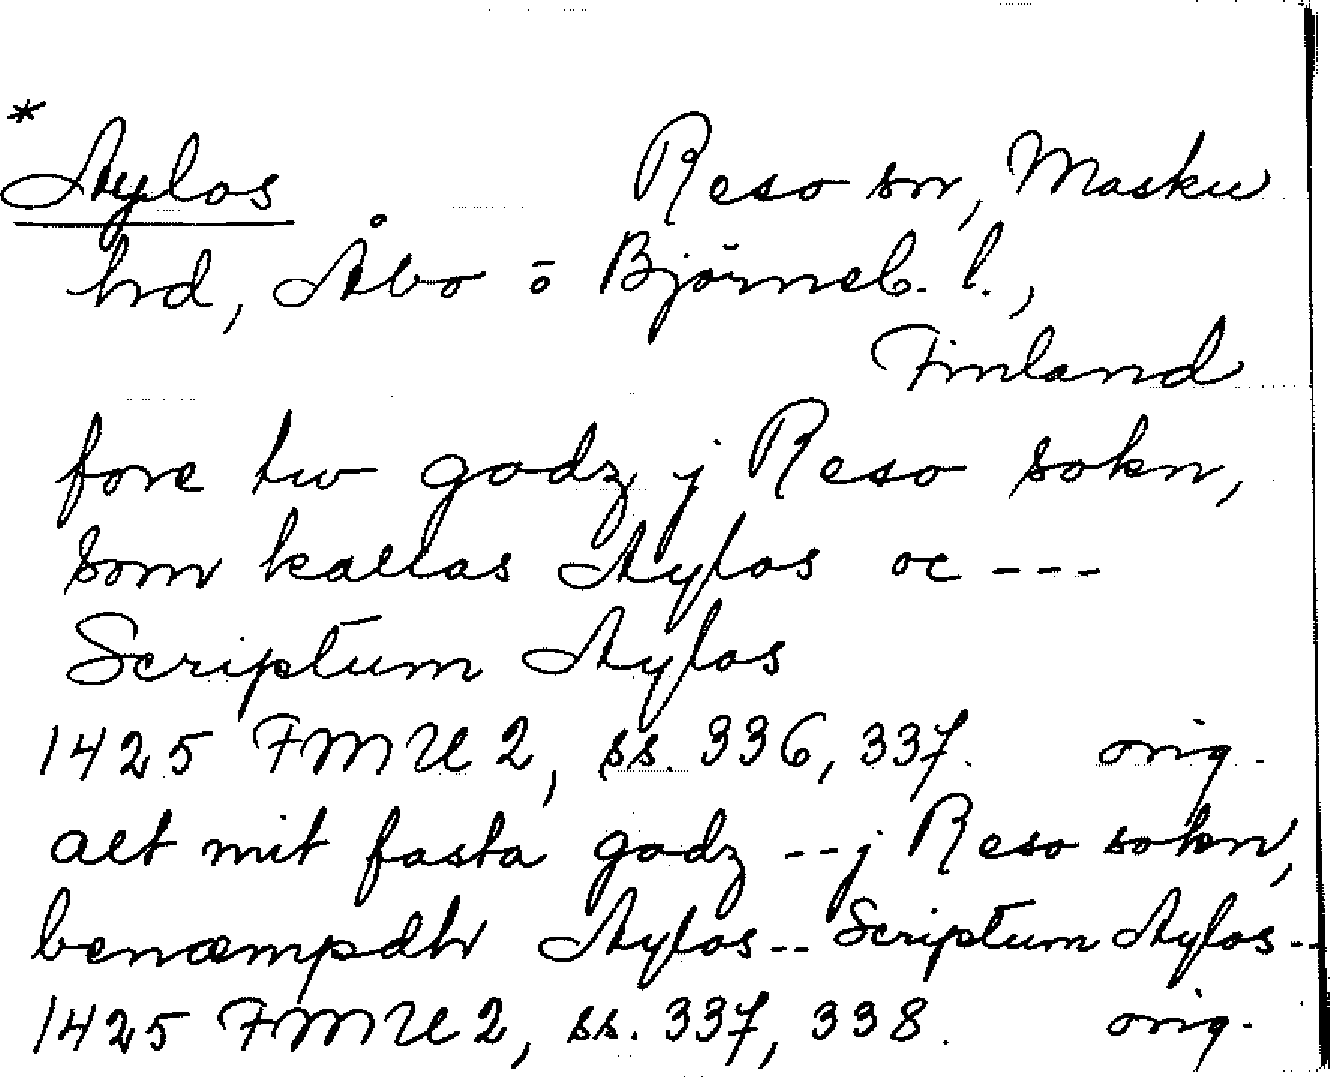 *
Aylos Reso sn, Masku
hd, Åbo o Björneb. l.,
Finland
fore tw godz j Reso sokn,
som kallas Aylos oc ---
Scriptum Aylos
1425 FMU 2, ss. 336, 337. orig.
alt mit fasta godz -- j Reso sokn,
benæmpdh Aylos -- Scriptum Aylos --
1425 FMU 2, ss. 337, 338. orig.